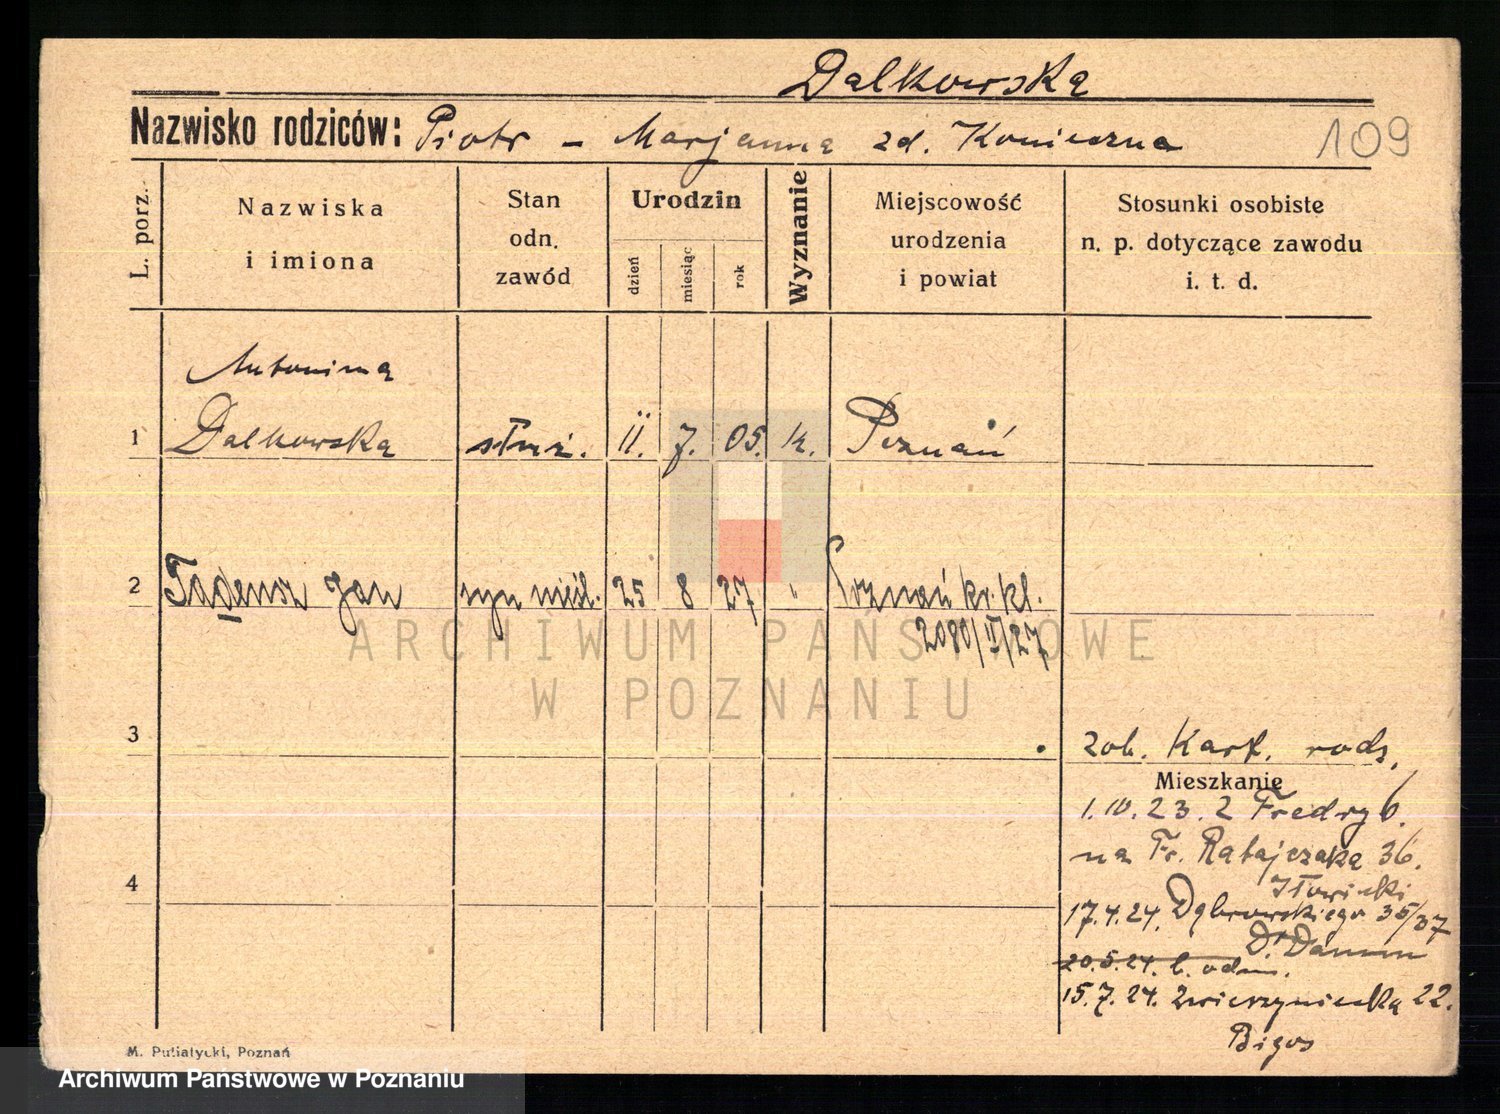 Dalkowska
Nazwisko rodziców: Piotr - Marjanna zd. Konieczna
109
L. porz.
Nazwiska
i imiona
Stan
odn.
zawód
Urodzin
dzień
miesiąc
rok
Wyznanie
Miejscowość
urodzenia
i powiat
Stosunki osobiste
n. p. dotyczące zawodu
i. t. d.
Antonina
1 Dalkowska służ. 11. 7. 05. k. Poznań
2 Tadeusz Jan syn nieśl. 25 8 27 " Poznań kr. kl.
2080/II/27
ARCHIWUM PAŃSTWOWE
W POZNANIU
3 zob. Kart. rodz.
Mieszkanie
1.10.23. z Fredry 6.
na Fr. Ratajczaka 36.
4 Iłowiecki
17.4.24. Dąbrowskiego 35/37
Dr. Damm
20.5.24. b. odm.
15.7.24. Zwierzyniecka 22.
Bigos
M. Putiatycki, Poznań
Archiwum Państwowe w Poznaniu